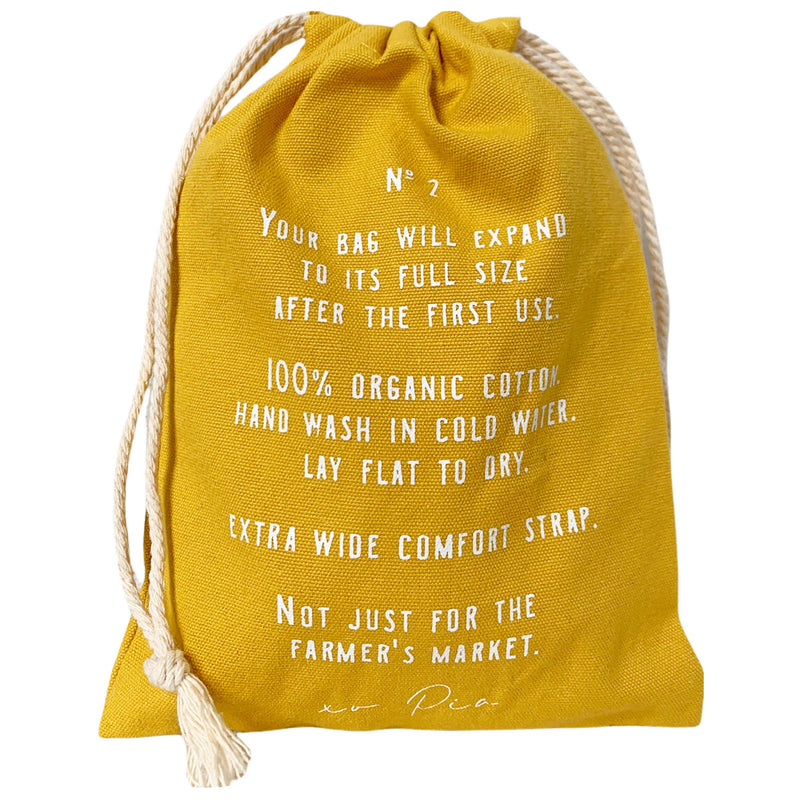 Nº 2
YOUR BAG WILL EXPAND
TO ITS FULL SIZE
AFTER THE FIRST USE.
100% ORGANIC COTTON.
HAND WASH IN COLD WATER.
LAY FLAT TO DRY.
EXTRA WIDE COMFORT STRAP.
NOT JUST FOR THE
FARMER'S MARKET.
xo Pia.